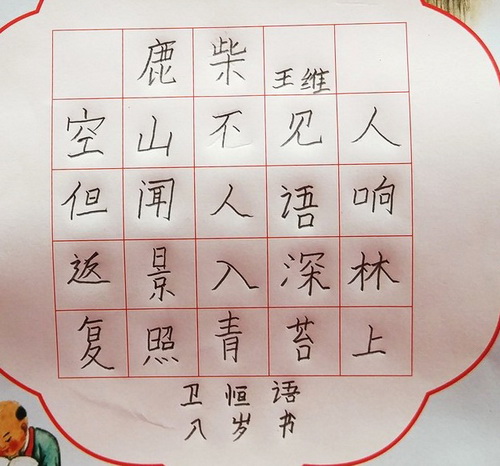 鹿柴 王维
空山不见人
但闻人语响
返景入深林
复照青苔上
卫恒语
八岁书